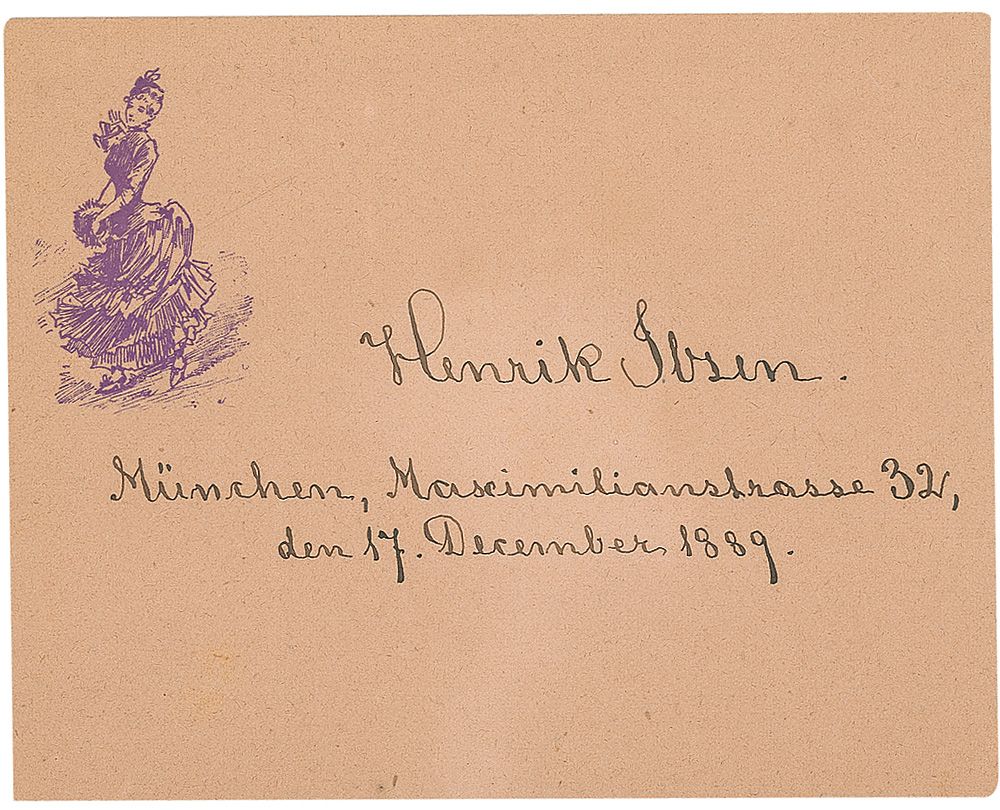 Henrik Ibsen.
München, Maximilianstrasse 32,
den 17. December 1889.